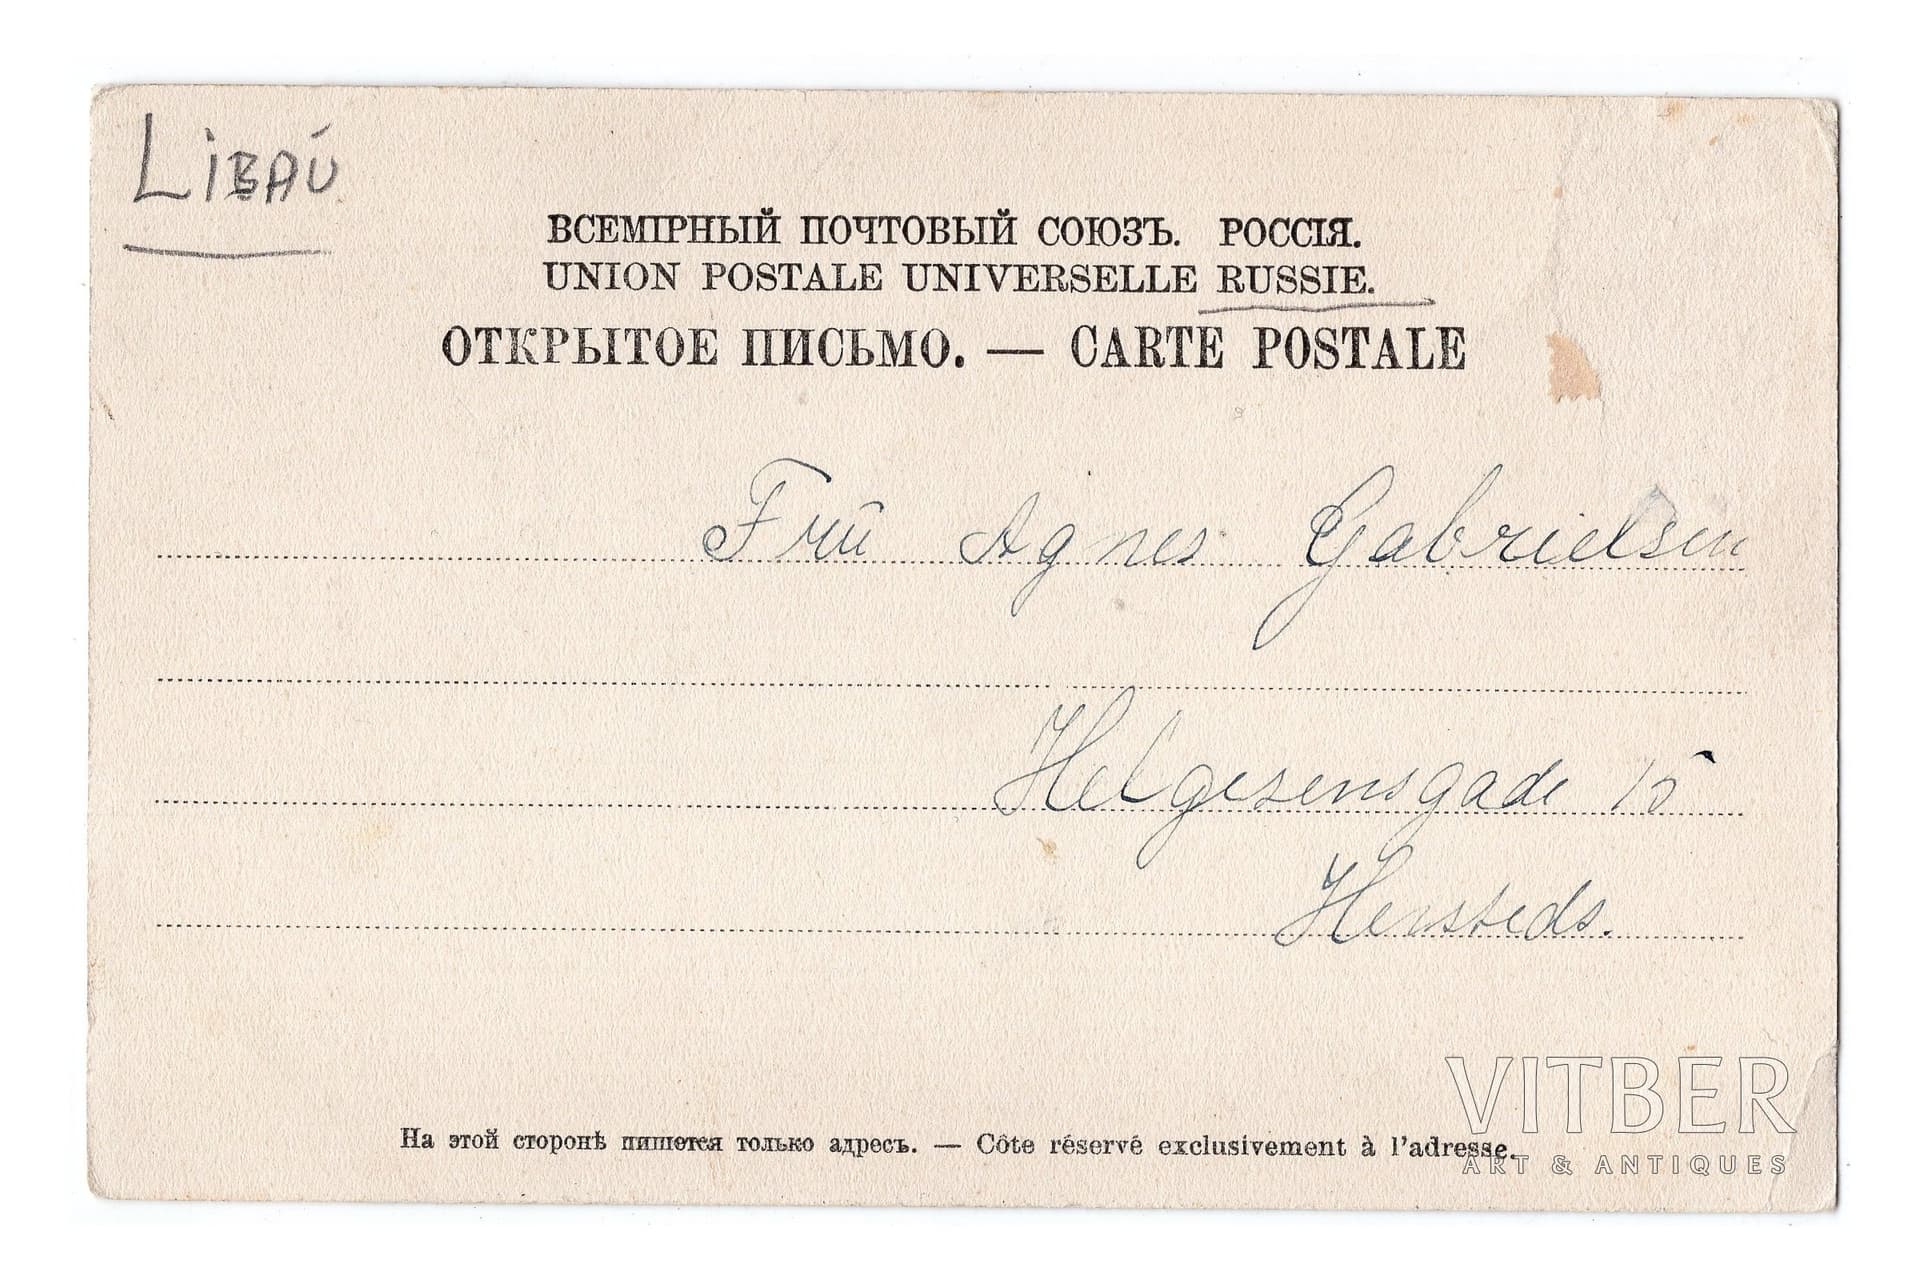 LIBAÚ
ВСЕМІРНЫЙ ПОЧТОВЫЙ СОЮЗЪ. РОССІЯ.
UNION POSTALE UNIVERSELLE RUSSIE.
ОТКРЫТОЕ ПИСЬМО. — CARTE POSTALE
Frū Agnes Gabrielsen
Helgesensgade 15
Hersteds.
На этой сторонѣ пишется только адресъ. — Côte réservé exclusivement à l'adresse.
VITBER
ART & ANTIQUES